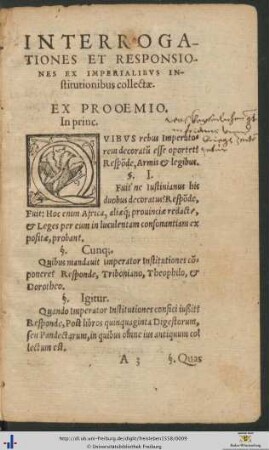 INTERROGA-
TIONES ET RESPONSIO-
NES EX IMPERIALIBVS IN-
stitutionibus collectæ.
EX PROOEMIO.
In princ.
QVIBVS rebus Imperato
rem decoratũ esse oportet?
Respõde, Armis & legibus.
§. I.
Fuit ne Iustinianus his
duobus decoratus? Respõde,
Fuit: Hoc enim Africa, aliæq; prouinciæ redactæ,
& Leges per eum in luculentam consonantiam ex
positæ, probant.
§. Cunq;.
Quibus mandauit imperator Institutiones cõ-
poneret? Responde, Triboniano, Theophilo, &
Dorotheo.
§. Igitur.
Quando Imperator Institutiones confici iussit?
Responde, Post libros quinquaginta Digestorum,
seu Pandectarum, in quibus omne ius antiquum col
lectum est.
A 3 §. Quas
http://dl.ub.uni-freiburg.de/diglit/freisleben1538/0009
© Universitätsbibliothek Freiburg